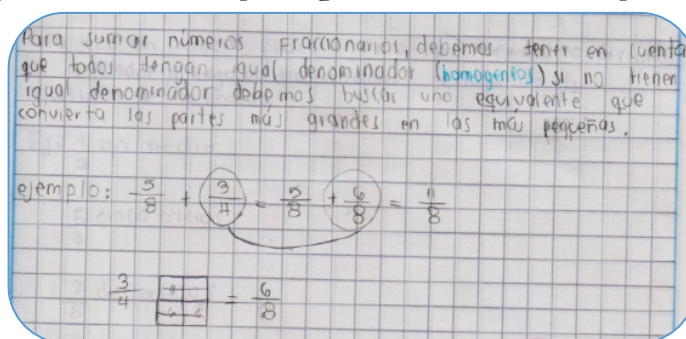 Para sumar números fraccionarios, debemos tener en cuenta
que todos tengan igual denominador (homogeneos) si no tienen
igual denominador debemos buscar uno equivalente que
convierta las partes más grandes en las más pequeñas.
ejemplo: 5/8 + 3/4 = 5/8 + 6/8 = 11/8
3/4 = 6/8